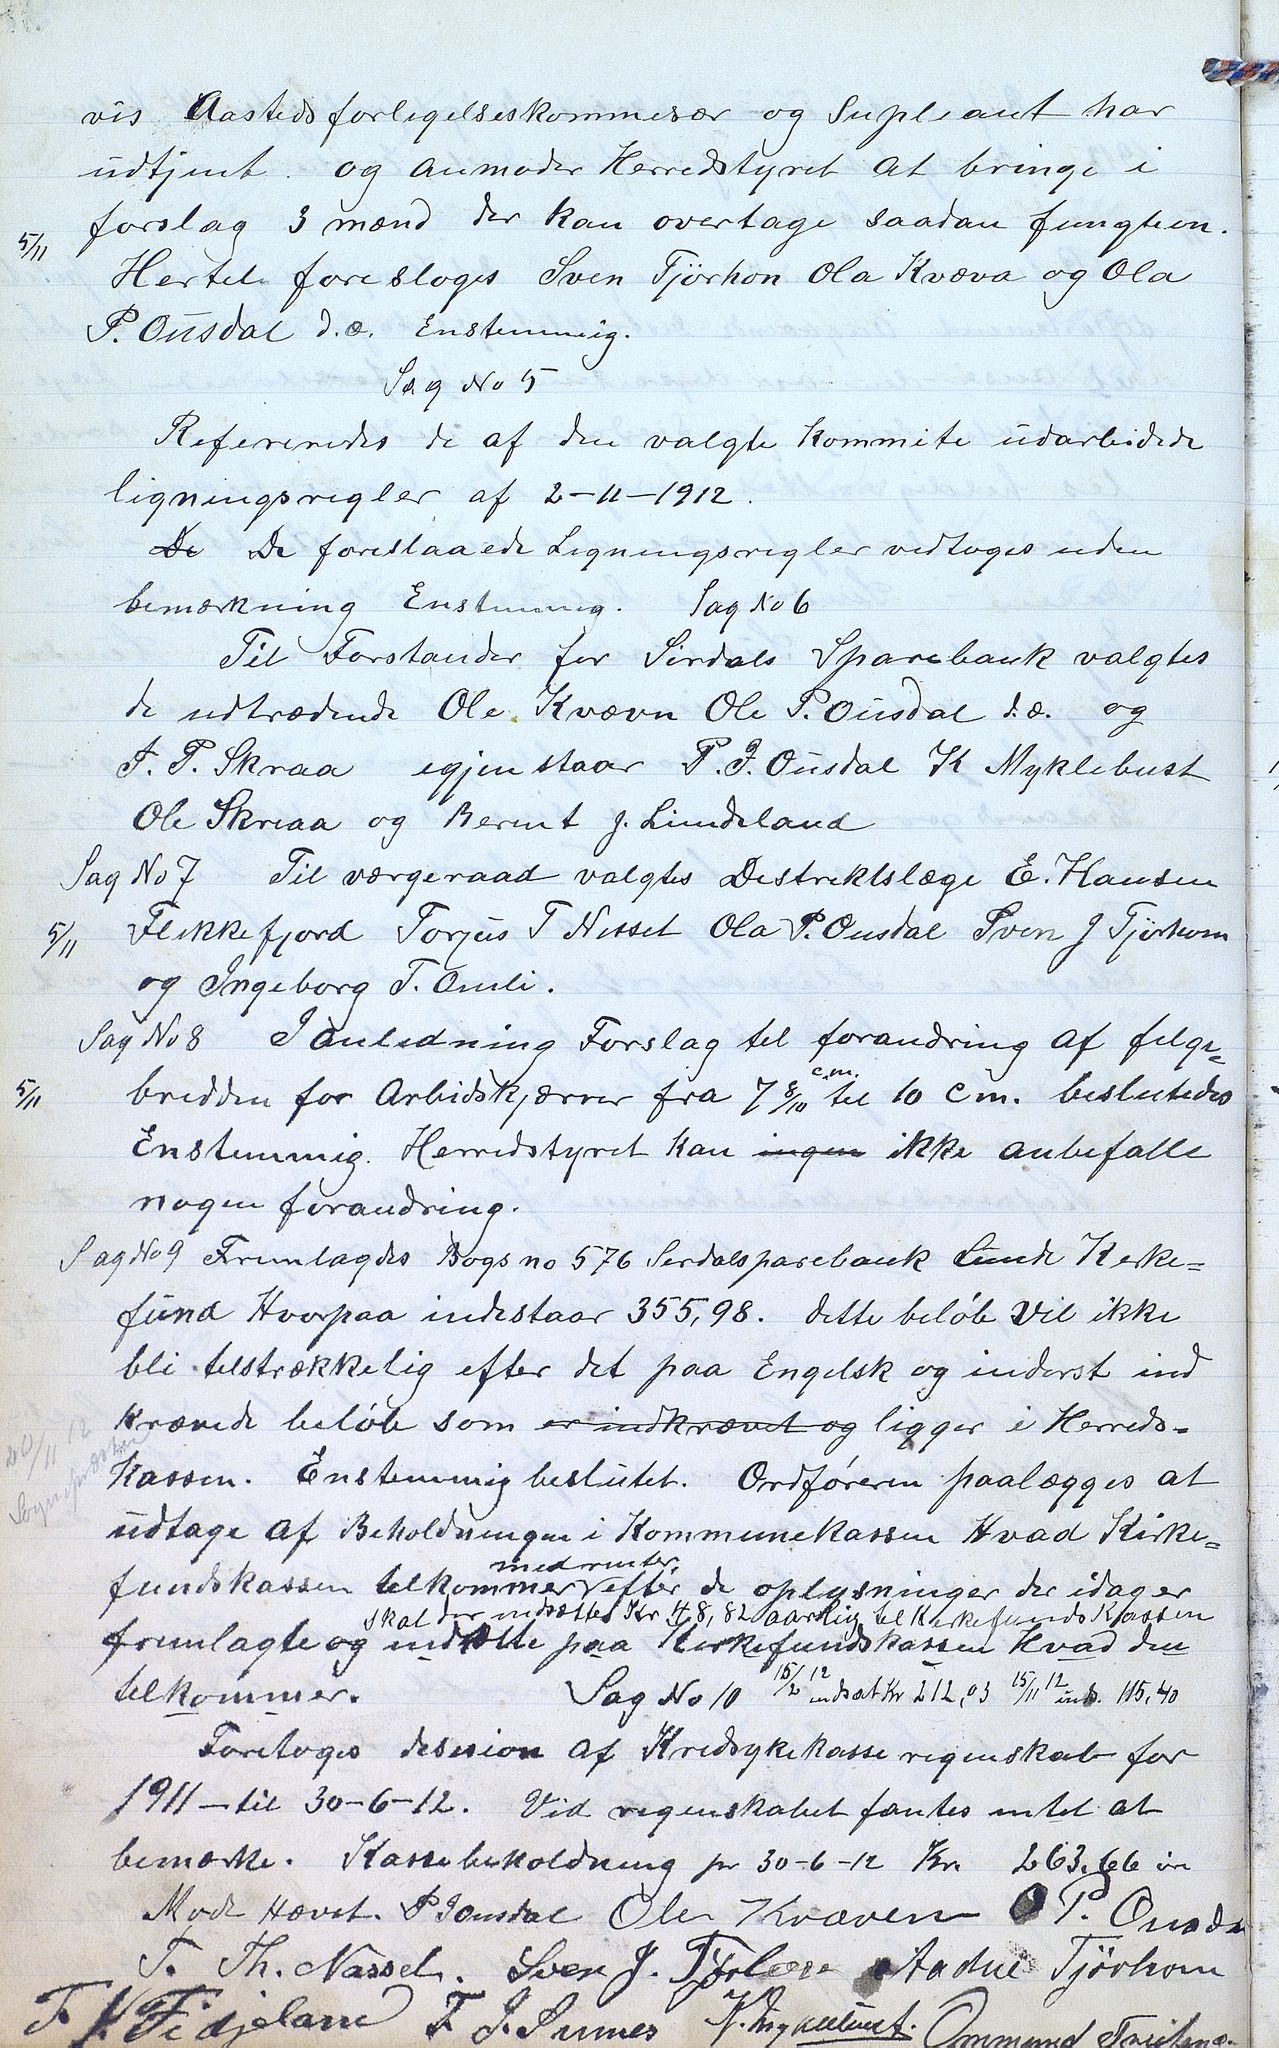 vis Aastedsforligelseskommisær og Supleant har
udtjent. og anmoder Herredstyret at bringe i
forslag 3 mænd der kan overtage saadan fungtion.
5/11
Hertil foresloges Sven Tjörhon Ola Kvæva og Ola
P. Ousdal d.æ. Enstemmig.
Sag No 5
Refereredes de af den valgte Kommite udarbeidede
ligningsregler af 2-11-1912.
De De foreslaaede Ligningsregler vedtoges uden
bemærkning Enstemmig. Sag No 6
Til Forstander for Sirdals Sparebank valgtes
de udtrædende Ole Kvævn Ole P. Ousdal d.æ. og
T. P. Skraa egjenstaar P. J. Ousdal K Myklebust
Ole Skreaa og Berent J. Lindeland
Sag No 7 Til værgeraad valgtes Destrektslæge E. Hansen
5/11
Flekkefjord Torjus T Nesset Ola P. Ousdal Sven J Tjörhom
og Ingeborg T. Omli.
Sag No 8 I anledning Forslag til forandring af felge-
5/11
bredden for Arbeidskjærrer fra 7 8/10 c.m. til 10 c m. beslutedes
Enstemmig. Herredstyret kan ingen ikke anbefalle
nogen forandring.
Sag No 9 Fremlagdes Bogs no 576 Serdalsparebank Lunde Kerke-
fund Hvorpaa indestaar 355,98. dette belöb vil ikke
bli telstrækkelig efter det paa Engelsk og inderst ind
krævede belöb som er indkrævet og ligger i Herreds-
20/11 12
Sognepræsten
Kassen. Enstemmig beslutet. Ordföreren paalægges at
udtage af Beholdningen i Kommunekassen Hvad Kirke-
med renter
fundskassen telkommer efter de oplysninger der idag er
skal der indsættes Kr 48,82 aarlig tel Kerkefundskassen
fremlagte og indsætte paa Kerkefundskassen Hvad den
telkommer. Sag No 10 15/2 12 indsat Kr 212,03 15/11 12 inds. 115,40
Foretoges desesion af Kredsykekasse regenskab for
1911 - til 30-6-12. Ved regenskabet fantes intet at
bemærke. Kassebeholdning pr 30-6-12 Kr. 263.66 öre
Möde Hævet. P J Ousdal Ole Kvæven O P. Ousdal
T. Th. Nesset. Sven J. Tjörhom Aadne Tjörhom
T. K Fidjeland T. J. Sunnes K. Myklebust. Ommund